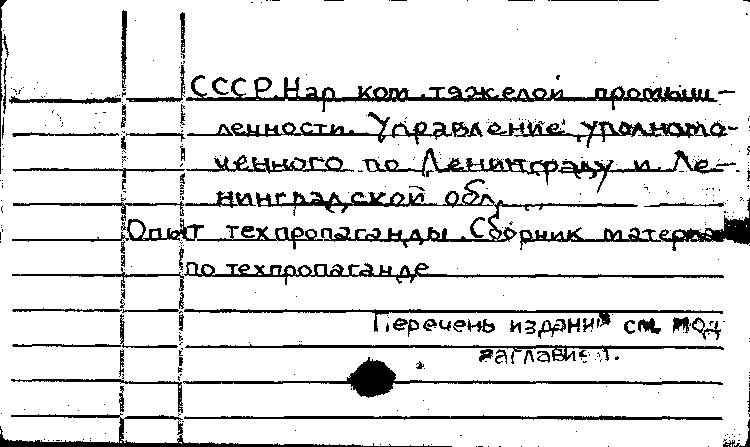 СССР. Нар ком. тяжелой промыш-
ленности. Управление уполномо-
ченного по Ленинграду и Ле-
нинградской обл.
Опыт техпропаганды. Сборник
по техпропаганде
Перечень изданий см. под
заглавием.